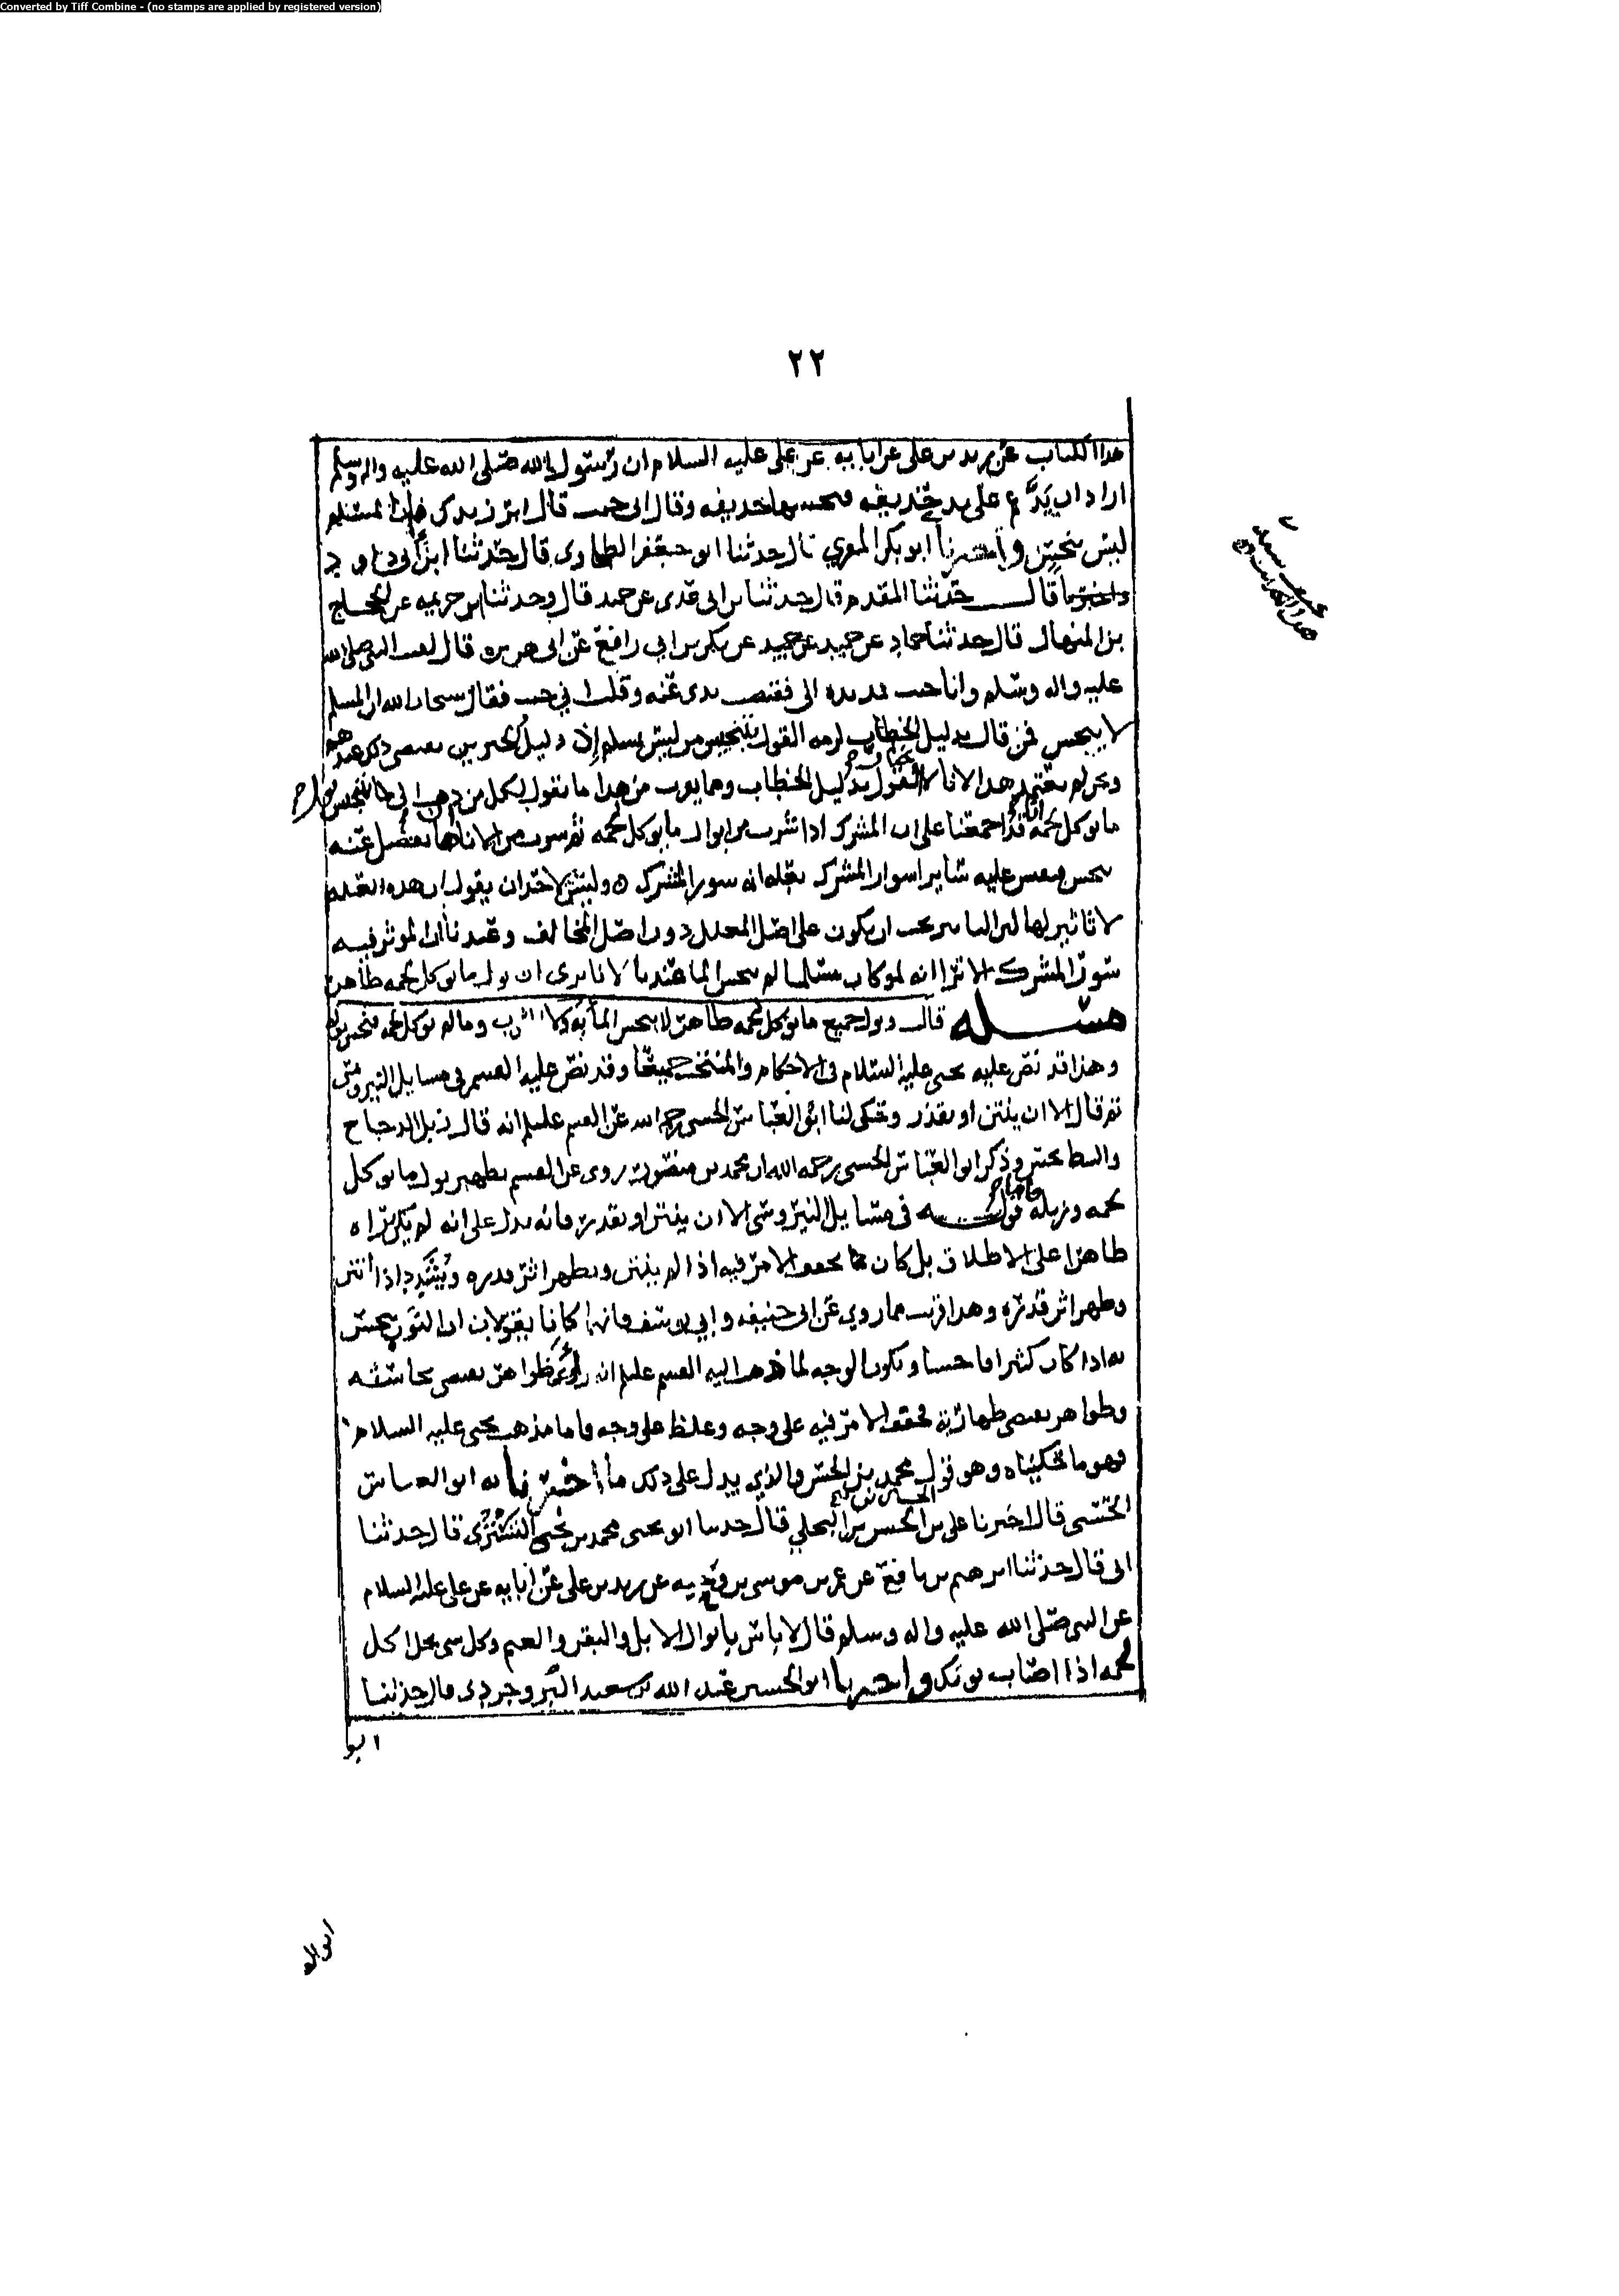 Converted by Tiff Combine - (no stamps are applied by registered version)
٢٢
هذا الكتاب عن زيد بن علي عن ابايه عن علي عليه السلام ان رسول الله صلى الله عليه واله وسلم
اراد ان على يد حذيفه حذيفه وقال اني جنب قال ابرز يدك فان المسلم
ليس بنجس واخبرنا ابو بكر المقري قال حدثنا ابو جعفر الطحاوي قال حدثنا ابن ابي داود
قال حدثنا المقدم قال حدثنا بن ابي عدي عن حميد قال وحدثنا بن خزيمه عن الحجاج
بن المنهال قال حدثنا حماد عن حميد عن بكر بن ابي رافع عن ابى هريره قال لقيت النبي صلى الله
عليه واله وسلم وانا جنب فمد يده الي فقبضت يدى عنه وقلت اني جنب فقال سبحان الله ان المسلم
لا ينجس فمن قال بدليل الخطاب لزمه القول بتنجيس من ليس بمسلم إذ دليل الخبرين يقتضى ذلك عندهم
ونحن لم نعتمد هذا لانا لا نقول بدليل الخطاب ومما يجب من هذا ما نقول لكل من ذهب الى
ما يوكل لحمه قد اجمعنا على ان المشرك اذا شرب من ابوال ما يوكل لحمه ثم شرب من الانا
نجس فنقيس عليه سائر اسوار المشرك بعله انه سور المشرك وليس لاحد ان يقول ان هذه العله
لا تاثير لها لان التاثير يجب ان يكون على اصل المعلل دون اصل المخالف وعندنا ان الموثر فيه
سور المشرك الا ترا انه لو كان مسلما لم ينجس الما عندنا لانا نرى ان بول ما يوكل لحمه طاهر
مسئله قال وبول جميع ما يوكل لحمه طاهر لا ينجس الما به ولا وما لم يوكل لحمه فنجس بوله
وهذا قد نص عليه يحيى عليه السلام في الاحكام والمنتخب جميعا وقد نص عليه القسم في مسايل النيروسي
ثم قال الا ان ينتن او يقذر وحكى لنا ابو العباس الحسني رحمه الله عن القسم عليلم انه قال زبل الدجاج
والبط نجس وذكر ابو العباس الحسني رحمه الله ان محمد بن منصور روى عن القسم تطهير بول ما يوكل
لحمه وزبله فاما قوله في مسايل النيروسي الا ان ينتن او يقذر فانه يدل على انه لم يكن يراه
طاهرا على الاطلاق بل كان يخفف الامر فيه اذا لم ينتن ويظهر اثر قذره ويشدد اذا أنتن
وظهر اثر قذره وهذا قريب مما روي عن ابى حنيفه وابي يوسف فانهما كانا يقولان ان الثوب ينجس
به اذا كان كثيرا فاحشا ويكون الوجه لما ذهب اليه القسم عليلم انه ظواهر تقتضي نجاسته
وظواهر تقتضي طهارته فخفف الامر فيه على وجه وغلظ على وجه فاما مذهب يحيى عليه السلام
فهو ما حكيناه وهو قول محمد بن الحسن والذي يدل على ذلك ما اخبرنا به ابو العباس
الحسني قال اخبرنا علي بن الحسن بن البجلي قال حدثنا ابو يحيى محمد بن يحيى التستري قال حدثنا
ابى قال حدثنا ابرهيم بن نافع عن عمر بن موسى بن وجيه عن زيد بن علي عن ابايه عن علي عليه السلام
عن النبي صلى الله عليه واله وسلم قال لا باس بابوال الابل والبقر والغنم وكل شي يحل اكل
لحمه اذا اصاب ثوبك واخبرنا ابو الحسين عبد الله بن سعيد البروجردي قال حدثنا
ابو